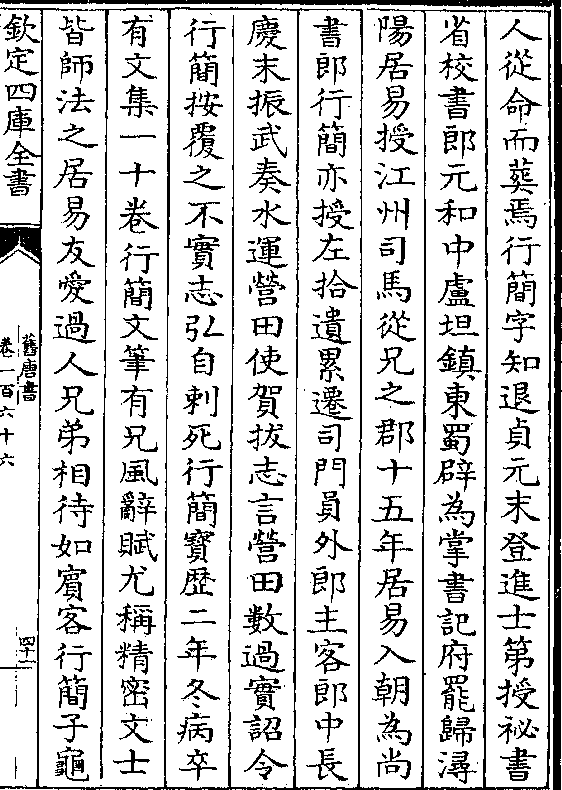 人從命而葬焉行簡字知退貞元末登進士第授祕書
省校書郎元和中盧坦鎮東蜀辟為掌書記府罷歸潯
陽居易授江州司馬從兄之郡十五年居易入朝為尚
書郎行簡亦授左拾遺累遷司門員外郎主客郎中長
慶末振武奏水運營田使賀拔志言營田數過實詔令
行簡按覆之不實志弘自刺死行簡寶歷二年冬病卒
有文集一十卷行簡文筆有兄風辭賦尤稱精密文士
皆師法之居易友愛過人兄弟相待如賓客行簡子龜
欽定四庫全書
舊唐書
卷一百六十六
四十二